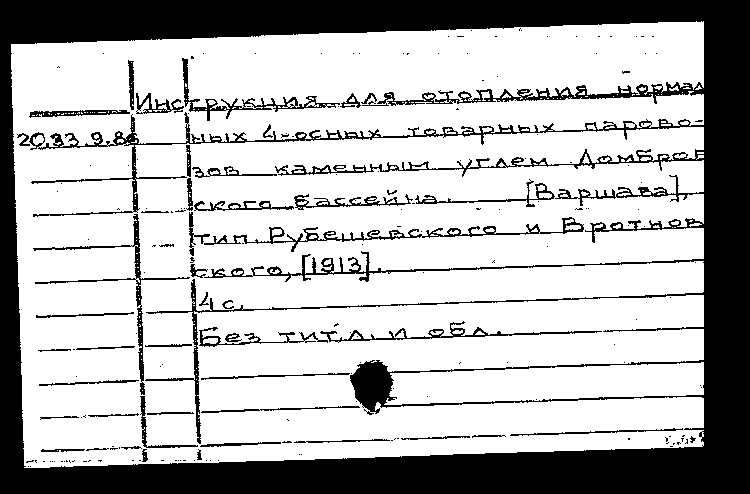 Инструкция для отопления нормал
20.33.9.86 ных 4-осных товарных парово-
зов каменным углем Домбров
ского бассейна. [Варшава],
тип. Рубешевского и Вротнов
ского, [1913].
4 с.
Без тит.л. и обл.